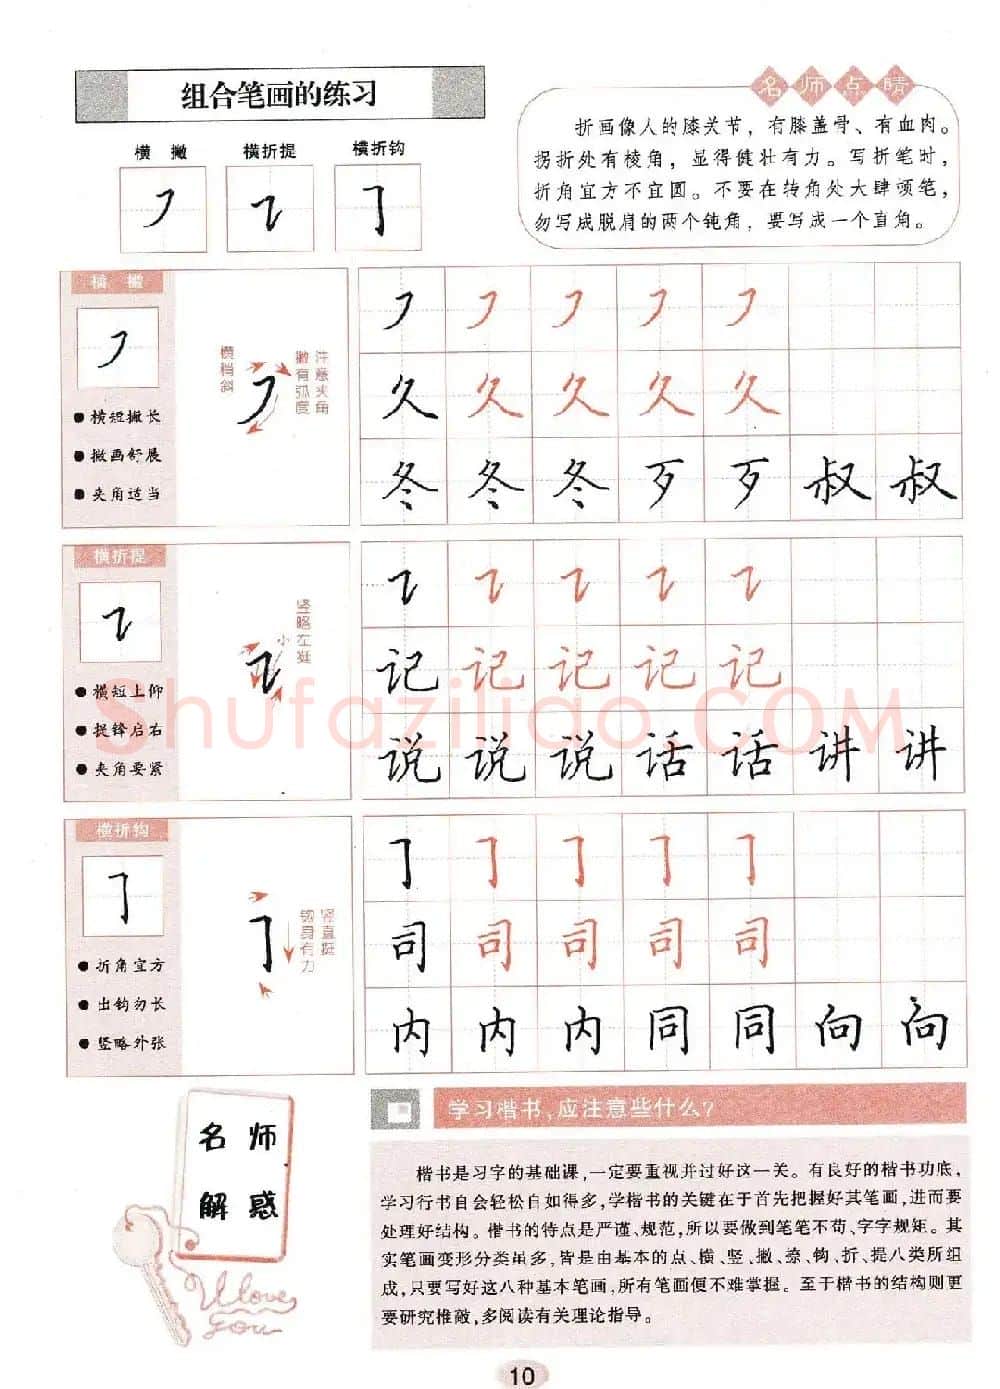 组合笔画的练习
横 撇 横折提 横折钩
名师点睛
折画像人的膝关节，有膝盖骨、有血肉。
拐折处有棱角，显得健壮有力。写折笔时，
折角宜方不宜圆。不要在转角处大肆顿笔，
勿写成脱肩的两个钝角，要写成一个直角。
横 撇
横短撇长
撇画舒展
夹角适当
横稍斜
撇有弧度
注意夹角
久 久 久 久 久
冬 冬 冬 歹 歹 叔 叔
横折提
横短上仰
提锋启右
夹角要紧
竖略左挺
小
记 记 记 记 记
说 说 说 话 话 讲 讲
Shufaziliao.COM
横折钩
折角宜方
出钩勿长
竖略外张
竖直挺
钩身有力
司 司 司 司 司
内 内 内 同 同 向 向
名师
解惑
U loves
you
学习楷书，应注意些什么？
楷书是习字的基础课，一定要重视并过好这一关。有良好的楷书功底，
学习行书自会轻松自如得多，学楷书的关键在于首先把握好其笔画，进而要
处理好结构。楷书的特点是严谨、规范，所以要做到笔笔不苟、字字规矩。其
实笔画变形分类虽多，皆是由基本的点、横、竖、撇、捺、钩、折、提八类所组
成，只要写好这八种基本笔画，所有笔画便不难掌握。至于楷书的结构则更
要研究推敲，多阅读有关理论指导。
10